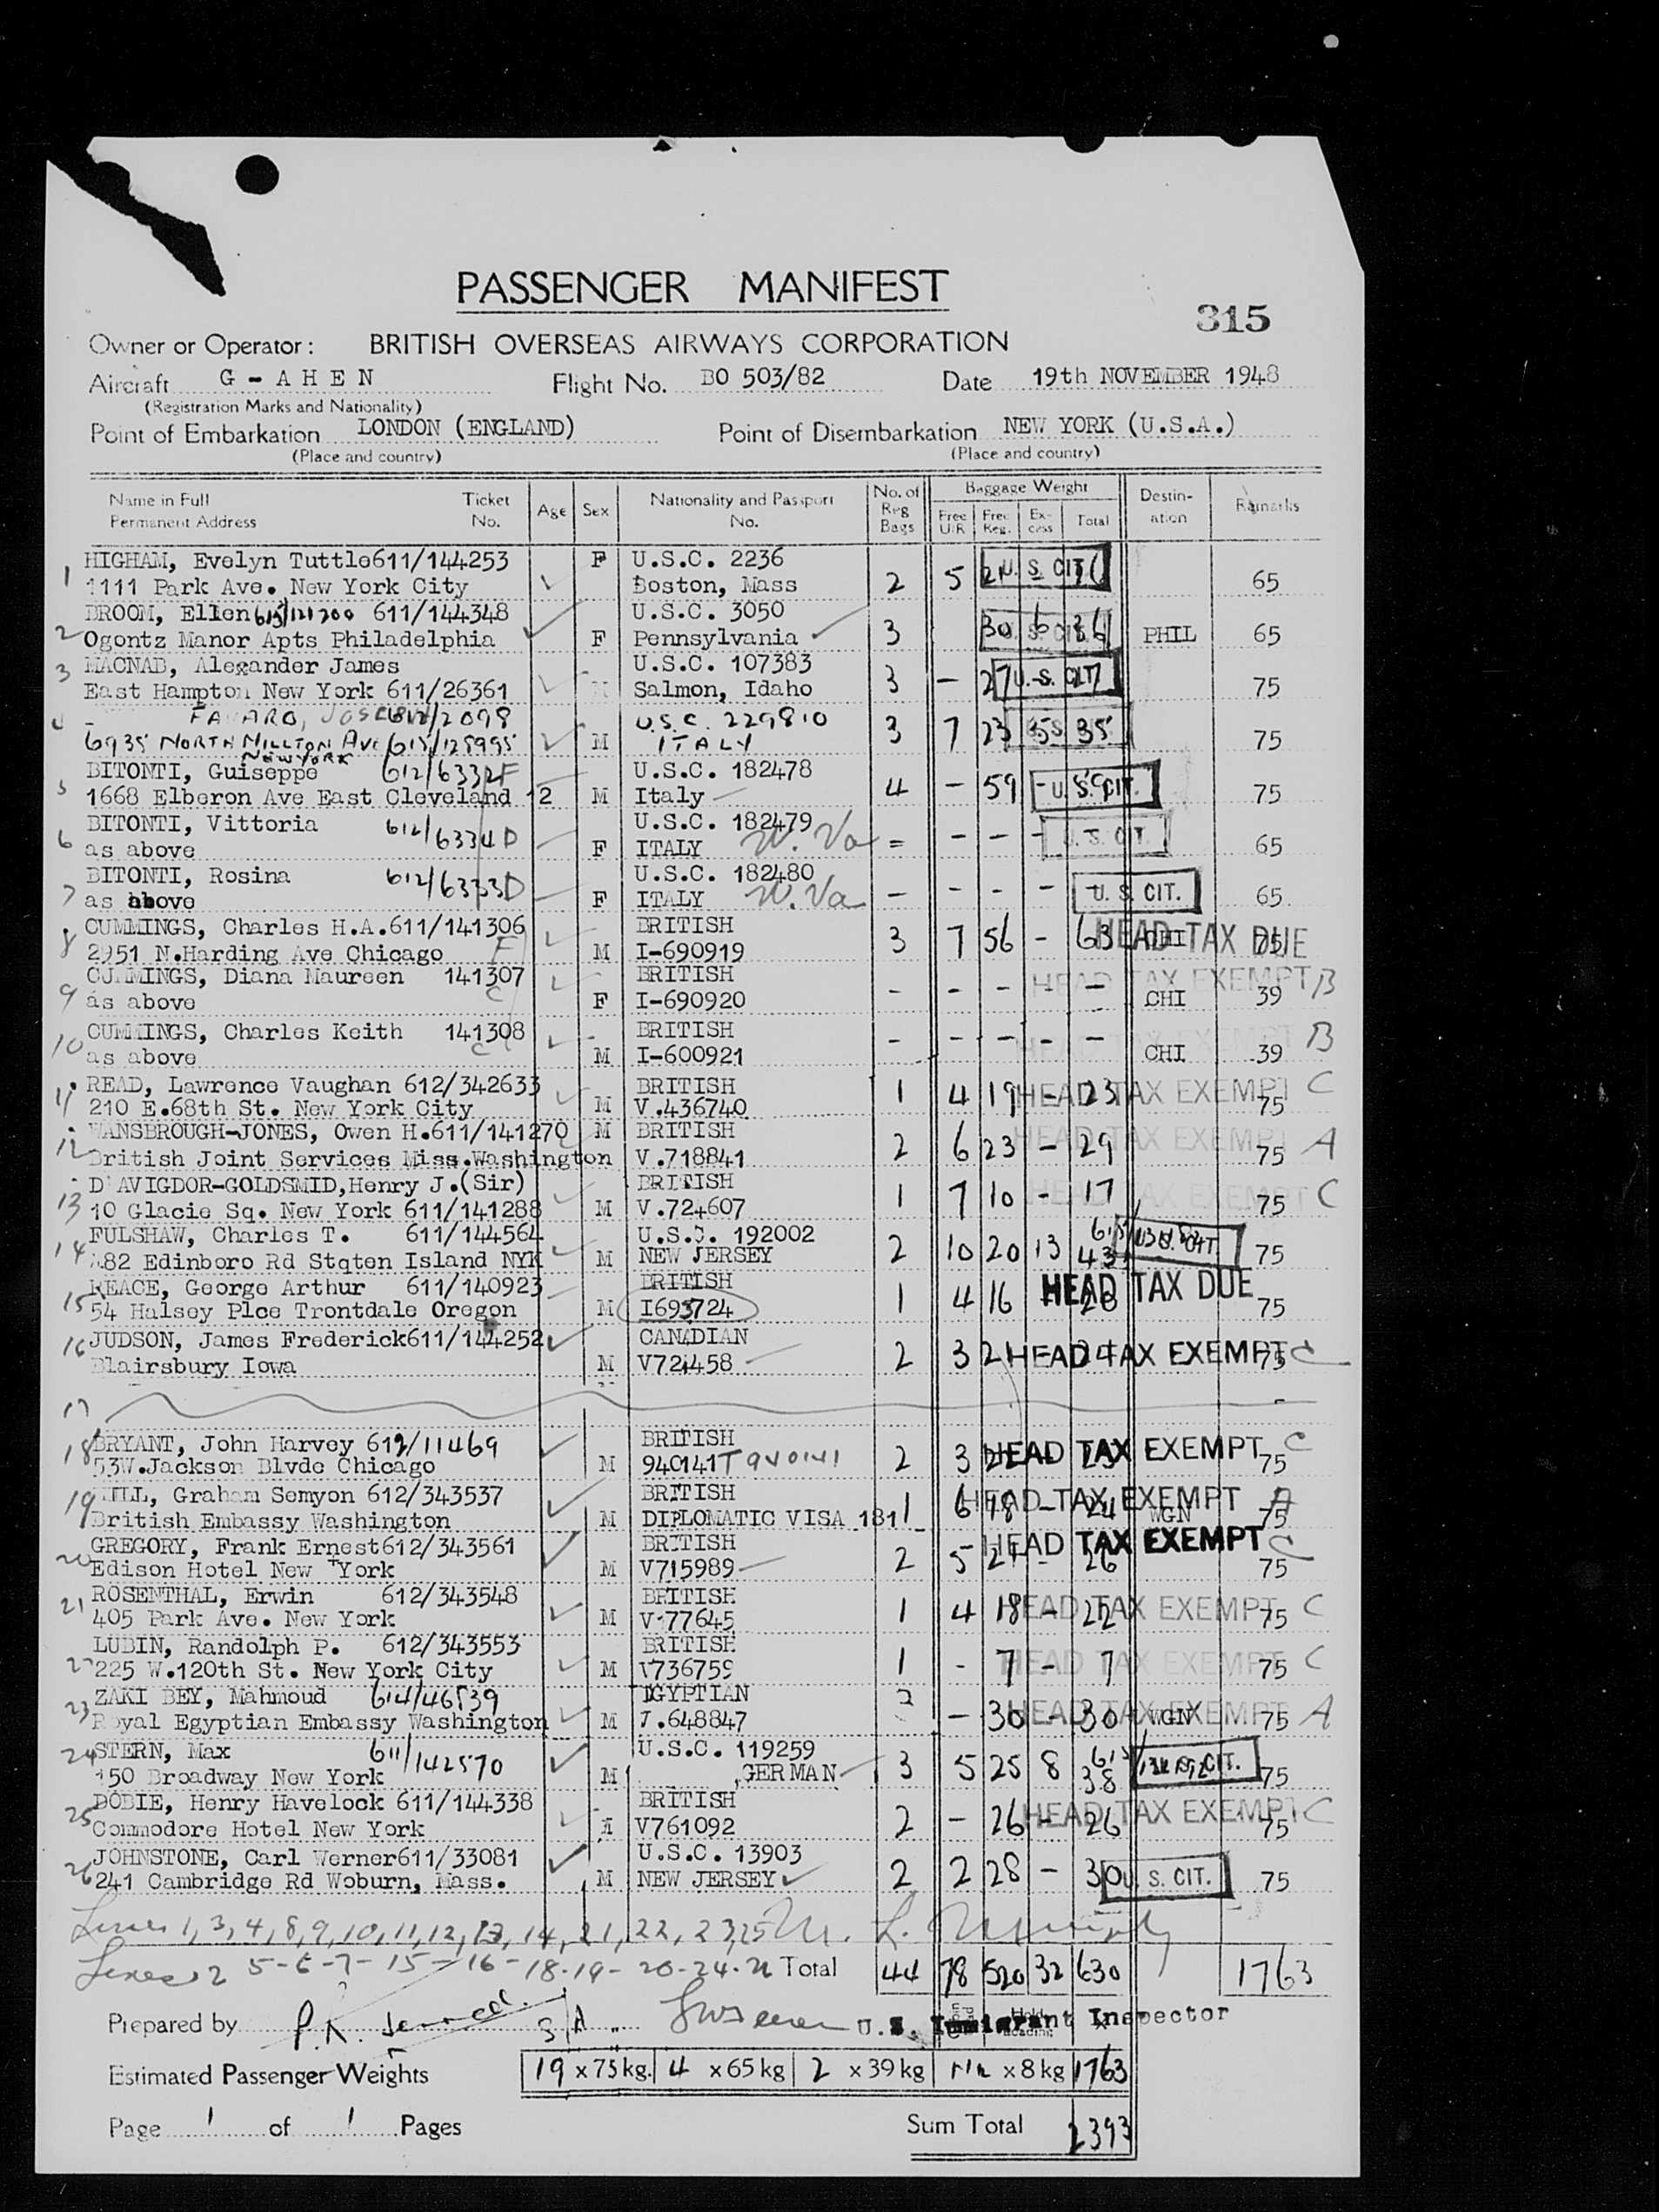 PASSENGER MANIFEST
315
Owner or Operator: BRITISH OVERSEAS AIRWAYS CORPORATION
Aircraft G - A H E N Flight No. BO 503/82 Date 19th NOVEMBER 1948
(Registration Marks and Nationality)
Point of Embarkation LONDON (ENGLAND) Point of Disembarkation NEW YORK (U.S.A.)
(Place and country) (Place and country)
Name in Full Ticket Age Sex Nationality and Passport No. of Baggage Weight Destin- Remarks
Permanent Address No. No. Reg Bags Free U/R Free Reg. Ex-cess Total ation
HIGHAM, Evelyn Tuttle 611/144253 F U.S.C. 2236 U. S. CIT.
1 1111 Park Ave. New York City Boston, Mass 2 5 65
BROOM, Ellen 615/121300 611/144348 U.S.C. 3050
2 Ogontz Manor Apts Philadelphia F Pennsylvania 3 30 6 36 PHIL 65
3 MACNAB, Alegander James U.S.C. 107383
East Hampton New York 611/26361 Salmon, Idaho 3 - 27 U. S. CIT. 75
612/2098 U.S.C. 229810
6935 NORTH AVE 615/125995 M ITALY 3 7 23 5 35 75
NEW YORK
BITONTI, Guiseppe 612/6332F U.S.C. 182478
5 1668 Elberon Ave East Cleveland 12 M Italy 4 - 59 - U. S. CIT. 75
BITONTI, Vittoria 612/6334D U.S.C. 182479
6 as above F ITALY W. Va = - - - U. S. CIT. 65
BITONTI, Rosina 612/6333D U.S.C. 182480
7 as above F ITALY W. Va - - - - U. S. CIT. 65
CUMMINGS, Charles H.A. 611/141306 BRITISH
8 2951 N.Harding Ave Chicago F M I-690919 3 7 56 - 63 CHI HEAD TAX DUE 75
CUMMINGS, Diana Maureen 141307 BRITISH HEAD TAX EXEMPT B
9 as above C F I-690920 - - - - - CHI 39
CUMMINGS, Charles Keith 141308 BRITISH HEAD TAX EXEMPT B
10 as above C M I-600921 - - - - - CHI 39
READ, Lawrence Vaughan 612/342633 BRITISH
11 210 E.68th St. New York City M V.436740 1 4 19 - 23 HEAD TAX EXEMPT C 75
WANSBROUGH-JONES, Owen H. 611/141270 M BRITISH
12 British Joint Services Miss.Washington V.718841 2 6 23 - 29 HEAD TAX EXEMPT A 75
D'AVIGDOR-GOLDSMID, Henry J.(Sir) BRITISH
13 10 Glacie Sq. New York 611/141288 M V.724607 1 7 10 - 17 HEAD TAX EXEMPT C 75
FULSHAW, Charles T. 611/144564 U.S.C. 192002
14 482 Edinboro Rd Stqten Island NYK M NEW JERSEY 2 10 20 13 43 U. S. CIT. 75
PEACE, George Arthur 611/140923 BRITISH
15 54 Halsey Plce Trontdale Oregon M I693724 1 4 16 20 HEAD TAX DUE 75
16 JUDSON, James Frederick 611/144252 CANADIAN
Blairsbury Iowa M V724458 2 3 21 - 24 HEAD TAX EXEMPT C 75
17
18 BRYANT, John Harvey 612/11469 BRITISH
53W.Jackson Blvde Chicago M 940141 T940141 2 3 HEAD TAX EXEMPT C 75
19 HILL, Graham Semyon 612/343537 BRITISH
British Embassy Washington M DIPLOMATIC VISA 181 1 6 18 - 24 WGN HEAD TAX EXEMPT A 75
20 GREGORY, Frank Ernest 612/343561 BRITISH
Edison Hotel New York M V715989 2 5 21 - 26 HEAD TAX EXEMPT C 75
21 ROSENTHAL, Erwin 612/343548 BRITISH
405 Park Ave. New York M V-77645 1 4 18 - 22 HEAD TAX EXEMPT C 75
LUBIN, Randolph P. 612/343553 BRITISH
22 225 W.120th St. New York City M V736759 1 - 7 - 7 HEAD TAX EXEMPT C 75
23 ZAKI BEY, Mahmoud 614/46539 EGYPTIAN
Royal Egyptian Embassy Washington M J.648847 - 30 - 30 WGN HEAD TAX EXEMPT A 75
24 STERN, Max 611/142570 U.S.C. 119259
150 Broadway New York M ,GERMAN 3 5 25 8 38 U. S. CIT. 75
DOBIE, Henry Havelock 611/144338 BRITISH
25 Commodore Hotel New York M V761092 2 - 26 - 26 HEAD TAX EXEMPT C 75
JOHNSTONE, Carl Werner 611/33081 U.S.C. 13903
26 241 Cambridge Rd Woburn, Mass. M NEW JERSEY 2 2 28 - 30 U. S. CIT. 75
Lines 1, 3, 4, 8, 9, 10, 11, 12, 13, 14, 21, 22, 23, 25
Lines 2 5-6-7-15-16-18-19-20-24-26 Total 44 78 520 32 630 1763
Prepared by U.S. Immigrant Inspector
Estimated Passenger Weights 19 x75kg. 4 x65kg 2 x39kg x8kg 1763
Page 1 of 1 Pages Sum Total 2393